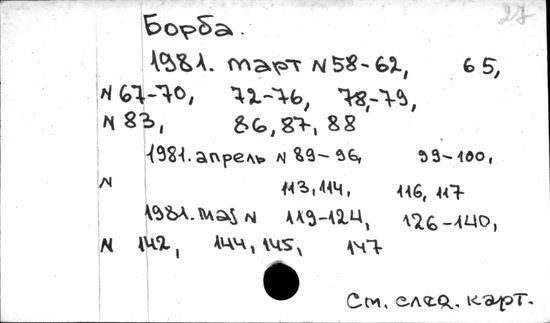 27
Борба.
1981. март N 58-62, 65,
N 67-70, 72-76, 78-79,
N 83, 86, 87, 88
1981. апрель N 89-96, 99-100,
N 113, 114, 116, 117
1981. май N 119-124, 126-140,
N 142, 144, 145, 147
См. след. карт.